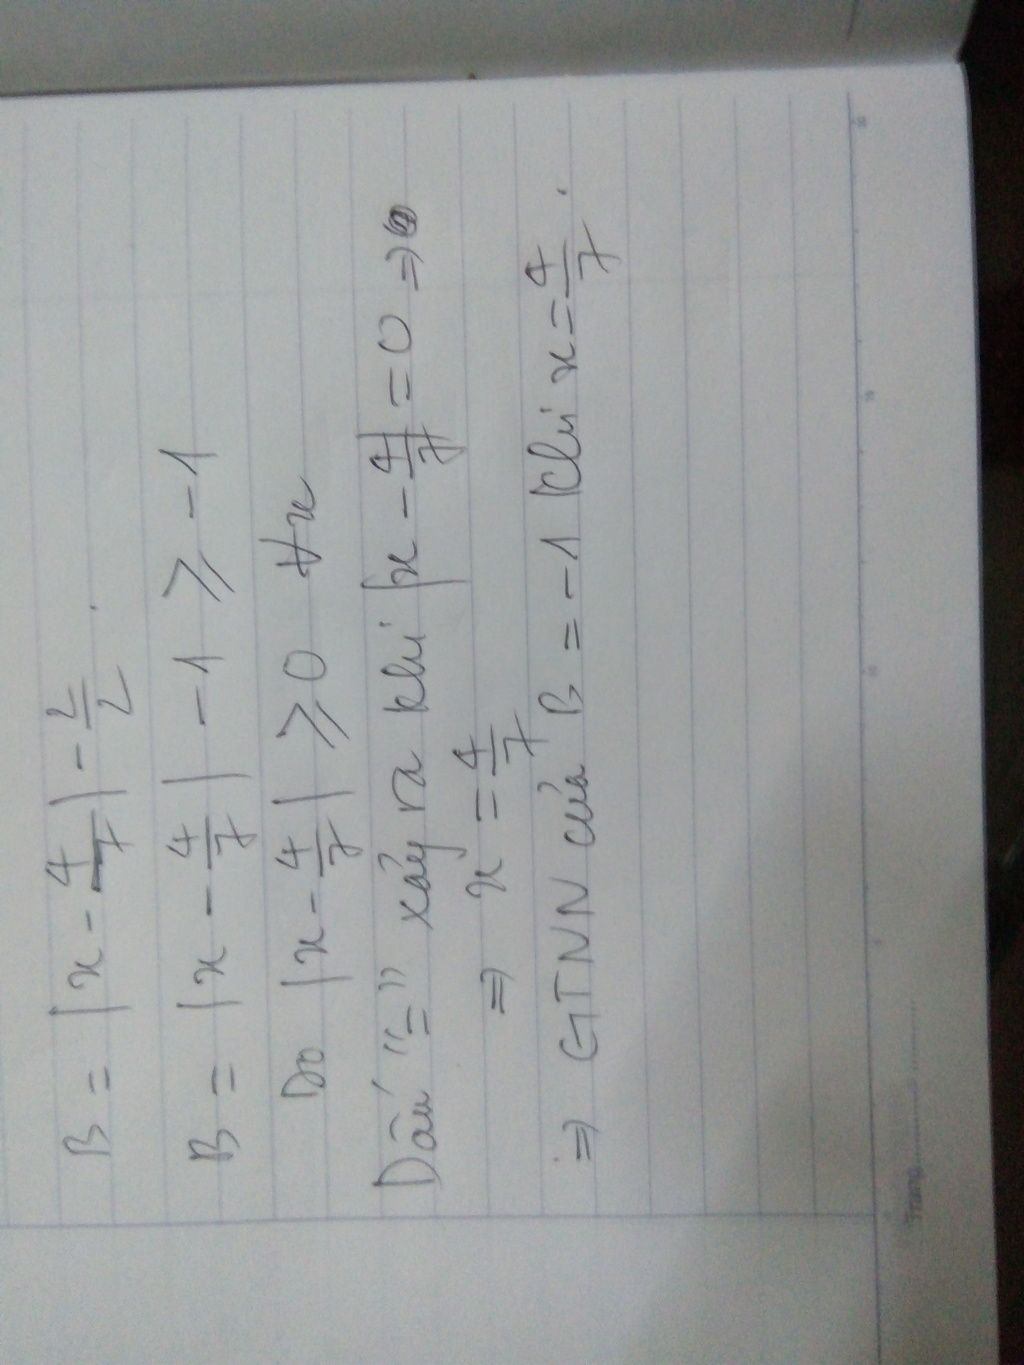 B = |x - 4/7| - 2/2.
B = |x - 4/7| - 1 ⩾ -1
Do |x - 4/7| ⩾ 0 ∀x
Dấu "=" xảy ra khi |x - 4/7| = 0 ⇒
⇒ x = 4/7
⇒ GTNN của B = -1 khi x = 4/7.
Trang